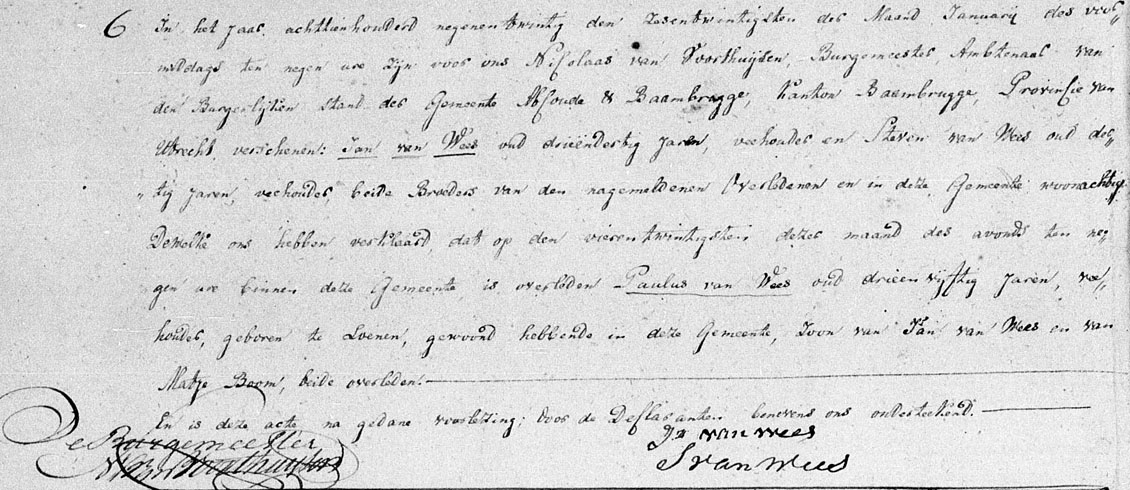 6 In het Jaar achttienhonderd negenentwintig den Zesentwintigsten der Maand Januarij des voor„
middags ten negen ure zijn voor ons Nicolaas van Voorthuijsen, Burgemeester Ambtenaar van
den Burgerlijken stand der Gemeente Abcoude & Baambrugge, Kanton Baambrugge, Provincie van
Utrecht, verschenen: Jan van Wees oud drieënderbig Jaren, veehouder en Steven van Wees oud der„
„tig Jaren, veehouder, beide Broeders van den nagemeldenen Overledenen en in deze Gemeente woonachtig
Dewelke ons hebben verklaard dat op den vierentwintigsten dezer maand des avonds ten ne„
gen ure binnen deze Gemeente is overleden Paulus van Wees oud drieenvijftig Jaren, vee„
houder, geboren te Loenen, gewoond hebbende in deze Gemeente, Zoon van Jan van Wees en van
Matje Boom, beide overleden.
En is deze acte na gedane voorlezing; door de Deklaranten benevens ons onderteekend.
De Burgemeester
Jn van wees
N. van Voorthuijsen
S van Wees